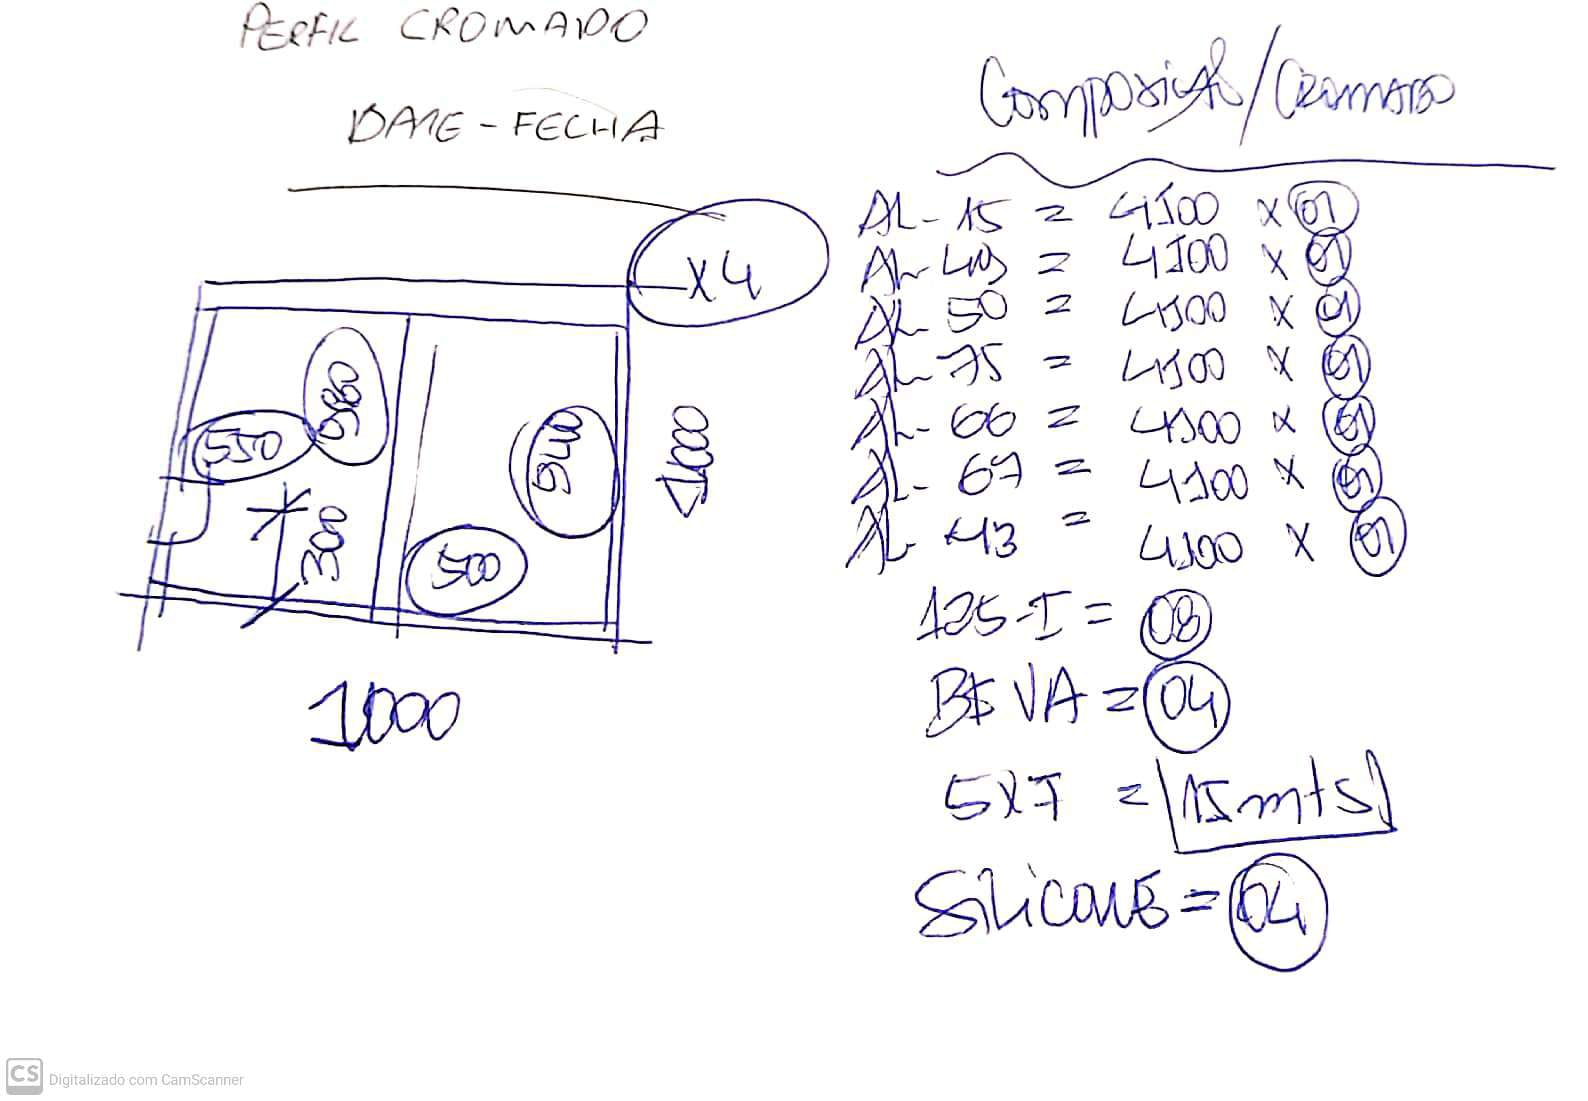 PERFIL CROMADO
BATE - FECHA
x4
550
980
300
940
500
1000
1000
Composição/Cromado
AL- 15 = 4100 x 01
AL- = 4100 x 01
AL- 50 = 4100 x 01
AL- 75 = 4100 x 01
AL- 66 = 4100 x 01
AL- 67 = 4100 x 01
AL- 43 = 4100 x 01
125-I = 08
VA = 04
5x7 = 15 mts
Silicone = 04
CS Digitalizado com CamScanner